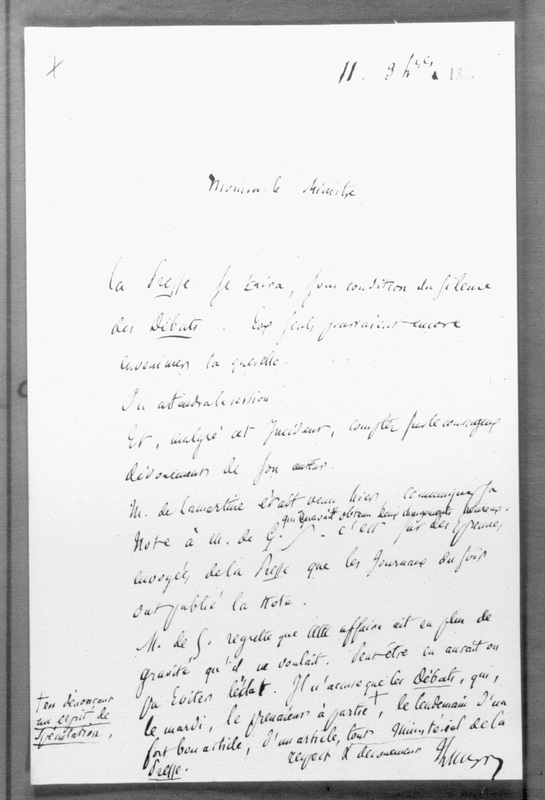 11. 8bre. 18
Monsieur le Ministre
La Presse se taira, sous condition du silence
des Débats. Eux seuls pourraient encore
envenimer la querelle.
On attendra la session.
Et, malgré cet incident, comptez sur le courageux
dévouement de son auteur.
M. de Lamartine était venu hier communiquer sa
qui avait obtenu deux changements heureux.
Note à M. de G. c'est sur des épreuves
envoyées de la Presse que les journaux du soir
ont publié la Note.
M. de G. regrette que cette affaire ait eu plus de
gravité qu'il ne voulait. Peut-être en aurait on
pu éviter l'éclat. Il n'accuse que les Débats, qui,
le mardi, le prenaient à partie +, le lendemain d'un
fort bon article, d'un article, tout Ministériel de la
Presse.
+ en dénonçant
un esprit de
spéculation,
respect & dévouement